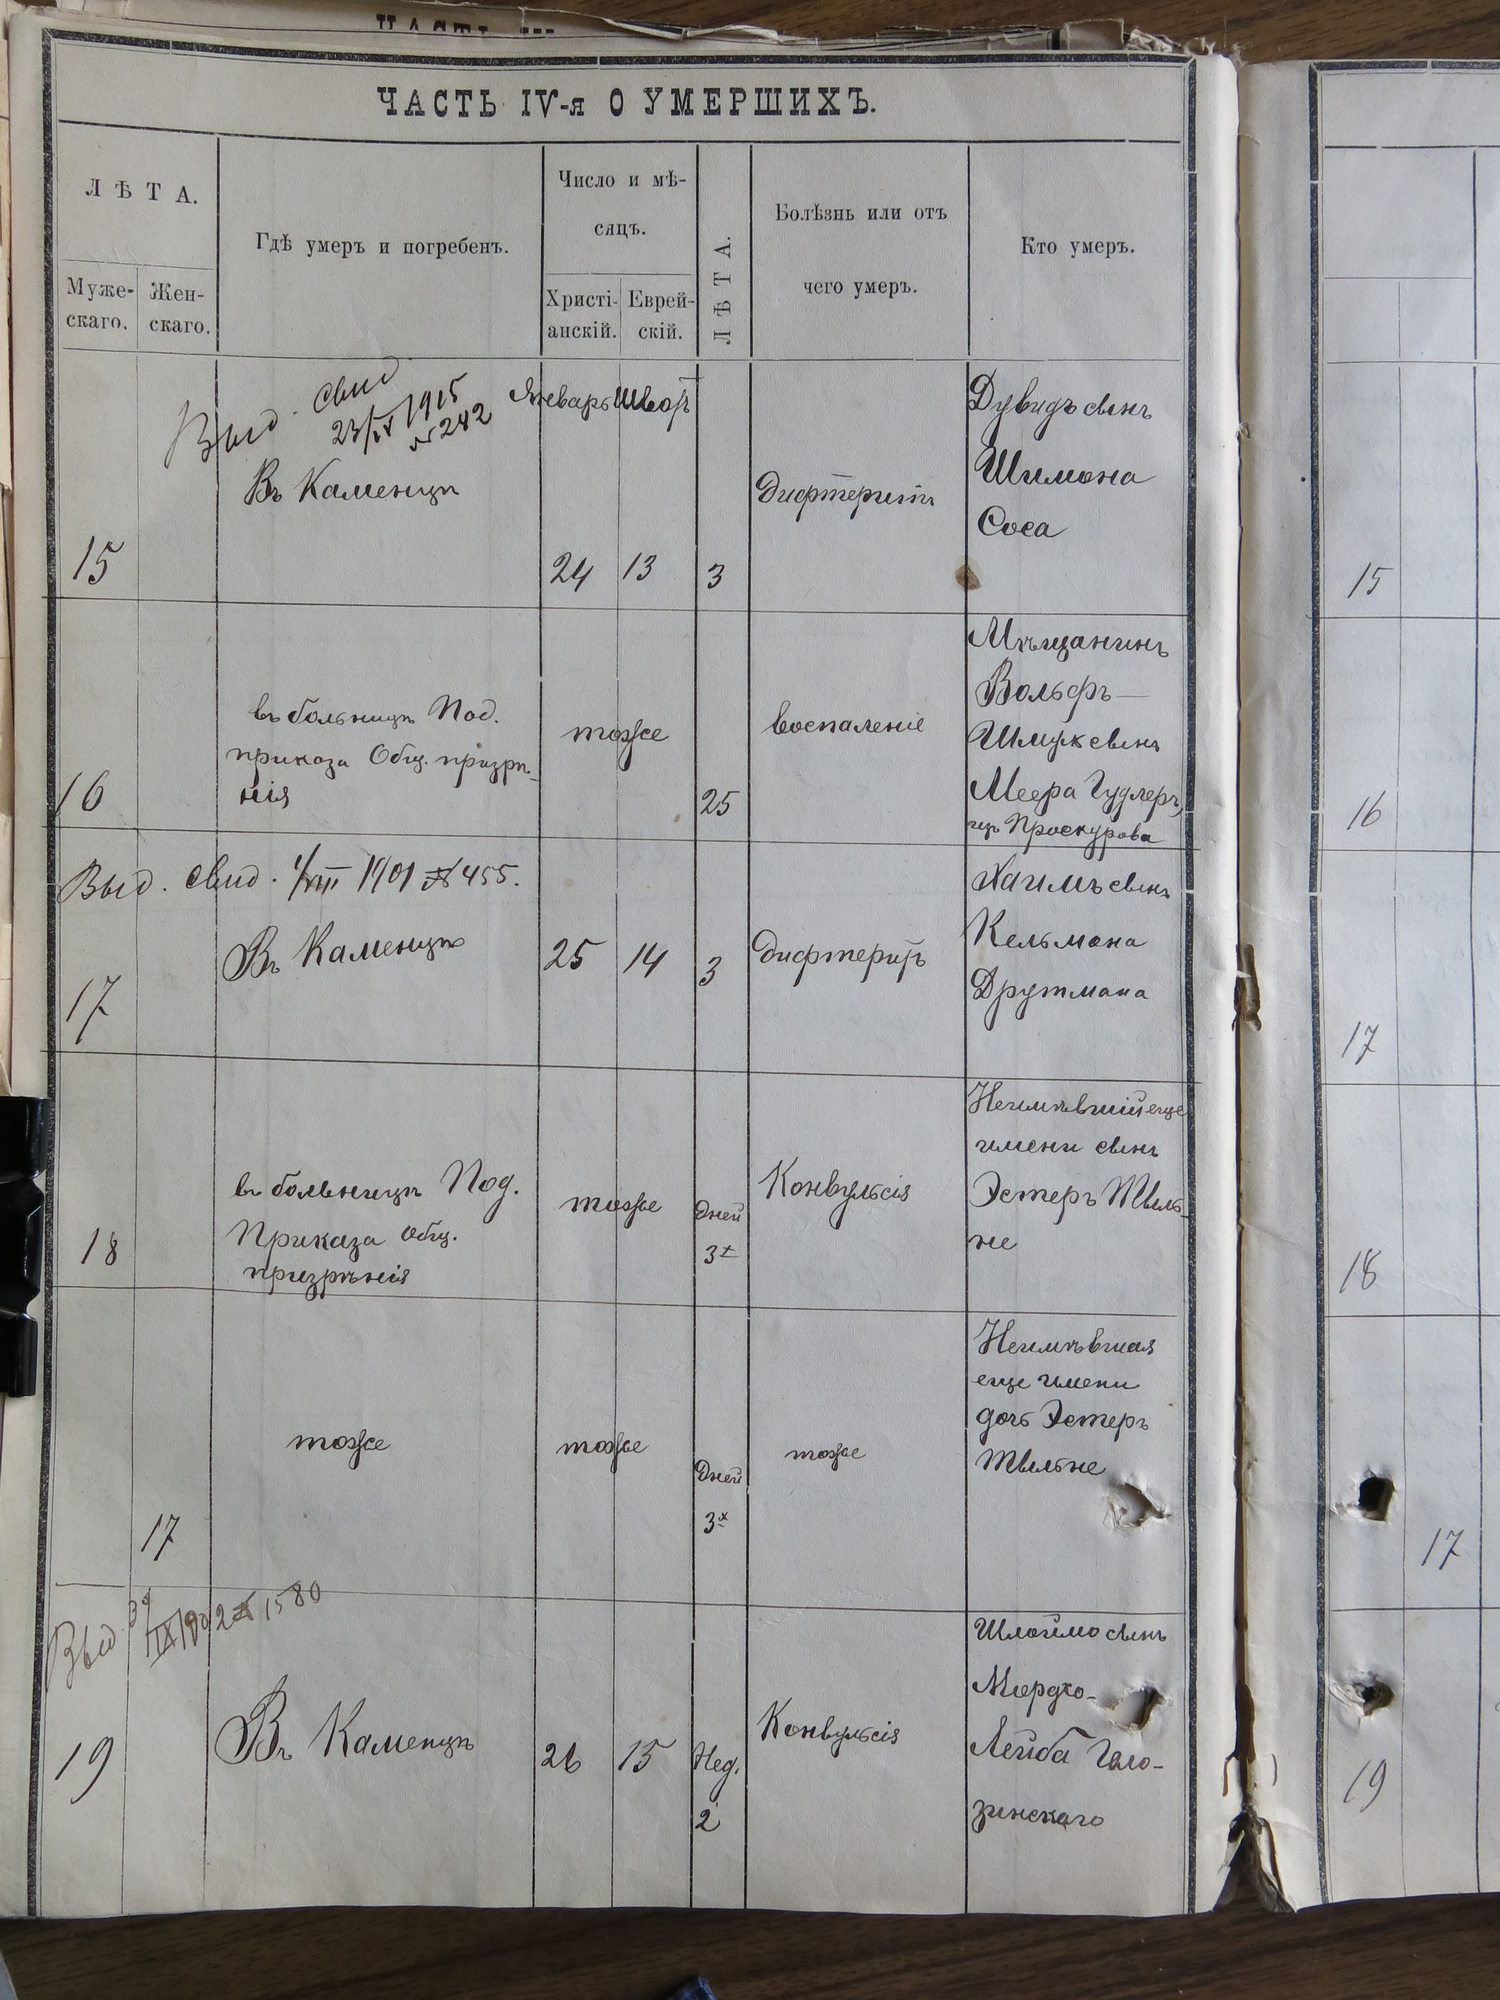 ЧАСТЬ IV-я О УМЕРШИХЪ.
ЛѢТА.
Муже-
скаго.
Жен-
скаго.
Гдѣ умеръ и погребенъ.
Число и мѣ-
сяцъ.
Христі-
анскій.
Еврей-
скій.
ЛѢТА.
Болѣзнь или отъ
чего умеръ.
Кто умеръ.
Выд. свид
23/IV 1915
№ 242
15
Въ Каменцѣ
Январь
24
13
3
Дифтеритъ
Дувидъ сынъ
Шимона
Соса
15
16
въ больницѣ Под.
приказа Общ. призрѣ-
нія
тоже
25
воспаленіе
Мѣщанинъ
Вольфъ-
Шмуль сынъ
Меера Гудлеръ,
изъ Проскурова
16
Выд. свид. 4/VIII 1901 № 455.
17
Въ Каменцѣ
25
14
3
Дифтеритъ
Хаимъ сынъ
Кельмана
Друтмана
17
18
въ больницѣ Под.
Приказа Общ.
призрѣнія
тоже
Дней
3х
Конвульсія
Неимѣвшій еще
имени сынъ
Эстеръ
18
17
тоже
тоже
Дней
3х
тоже
Неимѣвшая
еще имени
дочь Эстеръ
17
Выд. № 1580
19
Въ Каменцѣ
26
15
Нед.
2
Конвульсія
Шлоймо сынъ
Мордхо-
Лейба Гало-
зинскаго
19